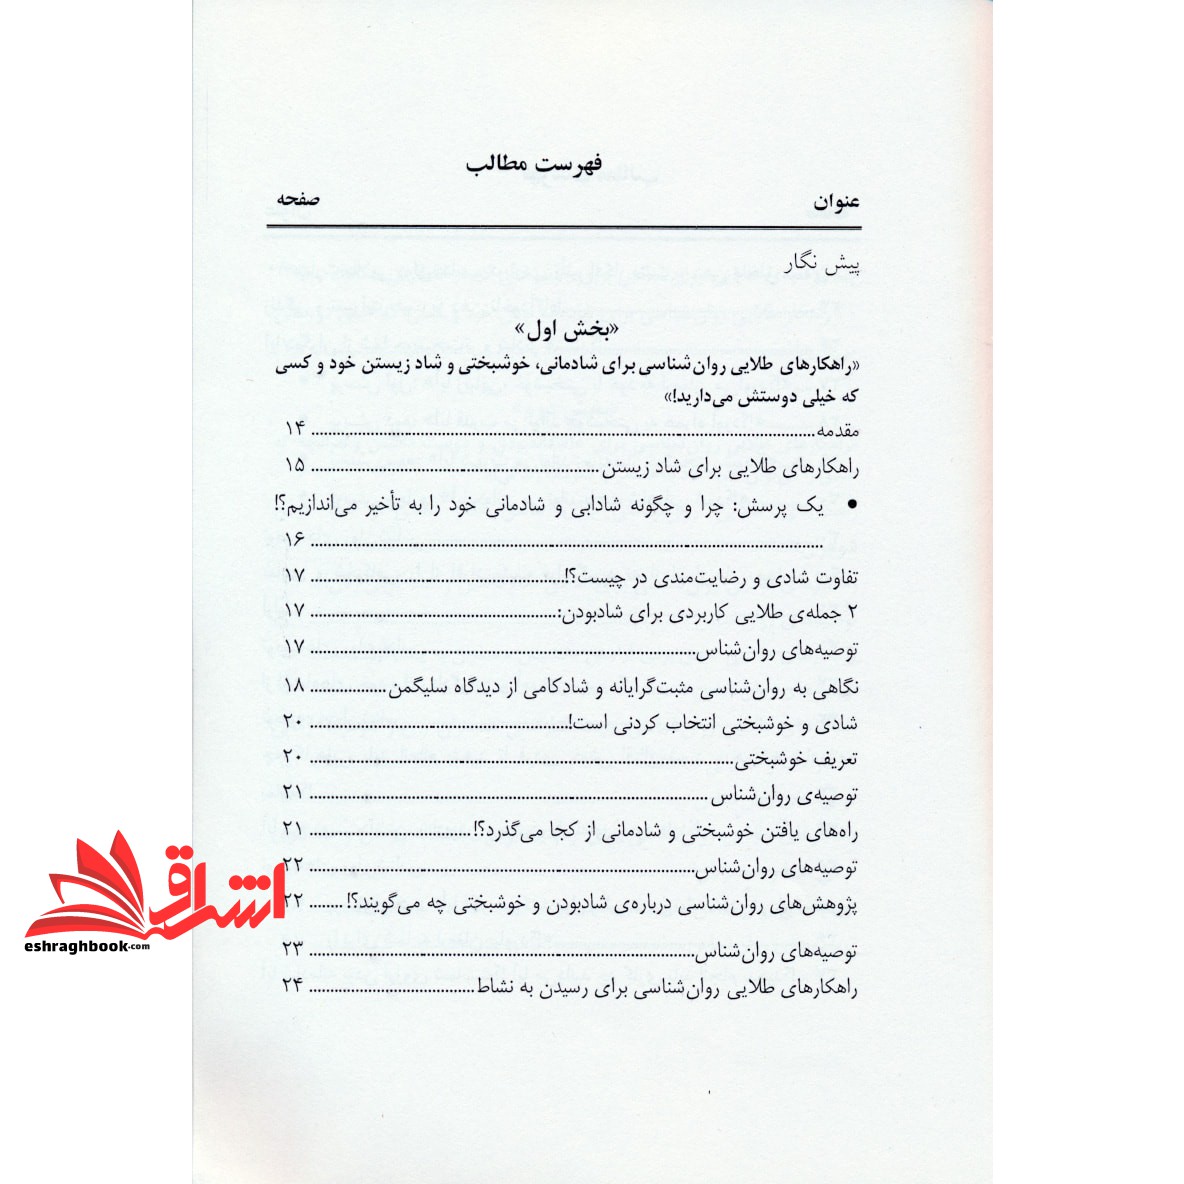 فهرست مطالب
عنوان صفحه
پیش نگار
«بخش اول»
«راهکارهای طلایی روان‌شناسی برای شادمانی، خوشبختی و شاد زیستن خود و کسی
که خیلی دوستش می‌دارید!»
مقدمه ........ ۱۴
راهکارهای طلایی برای شاد زیستن ........ ۱۵
• یک پرسش: چرا و چگونه شادابی و شادمانی خود را به تأخیر می‌اندازیم؟!
........ ۱۶
تفاوت شادی و رضایت‌مندی در چیست؟! ........ ۱۷
۲ جمله‌ی طلایی کاربردی برای شادبودن: ........ ۱۷
توصیه‌های روان‌شناس ........ ۱۷
نگاهی به روان‌شناسی مثبت‌گرایانه و شادکامی از دیدگاه سلیگمن ........ ۱۸
شادی و خوشبختی انتخاب کردنی است! ........ ۲۰
تعریف خوشبختی ........ ۲۰
توصیه‌ی روان‌شناس ........ ۲۱
راه‌های یافتن خوشبختی و شادمانی از کجا می‌گذرد؟! ........ ۲۱
توصیه‌های روان‌شناس ........ ۲۲
پژوهش‌های روان‌شناسی درباره‌ی شادبودن و خوشبختی چه می‌گویند؟! ........ ۲۲
توصیه‌های روان‌شناس ........ ۲۳
راهکارهای طلایی روان‌شناسی برای رسیدن به نشاط ........ ۲۴
اشراق
eshraghbook.com